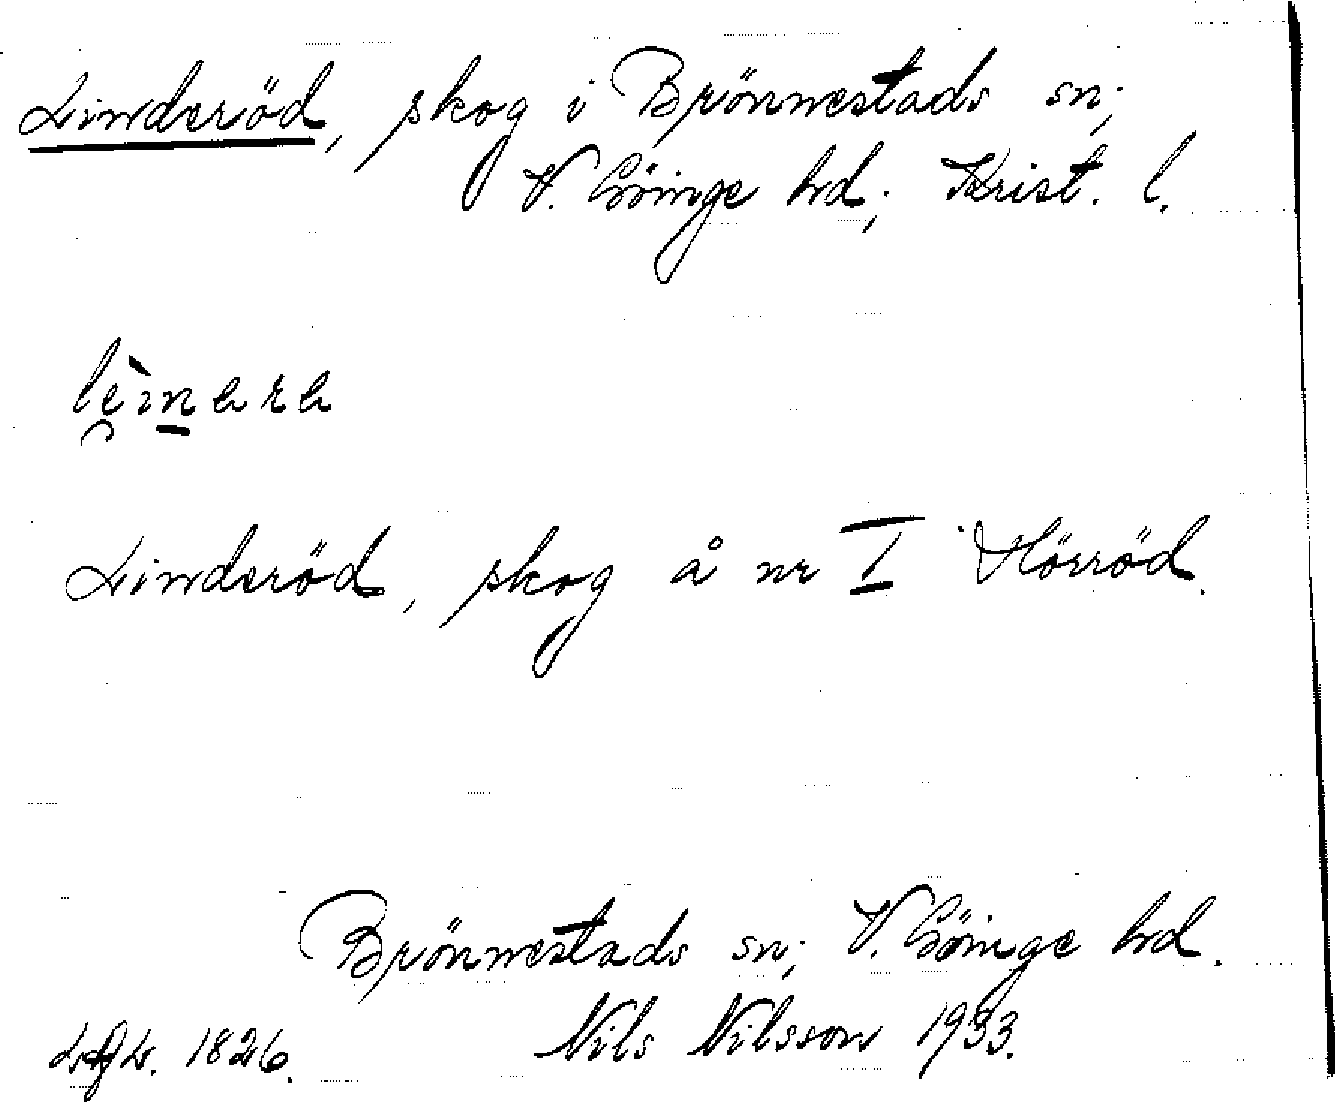 Linderöd, skog i Brönnestads sn;
V. Göinge hd; Krist. l.
Linderöd, skog å nr I Hörröd.
Brönnestads sn; V. Göinge hd.
1826. Nils Nilsson 1933.